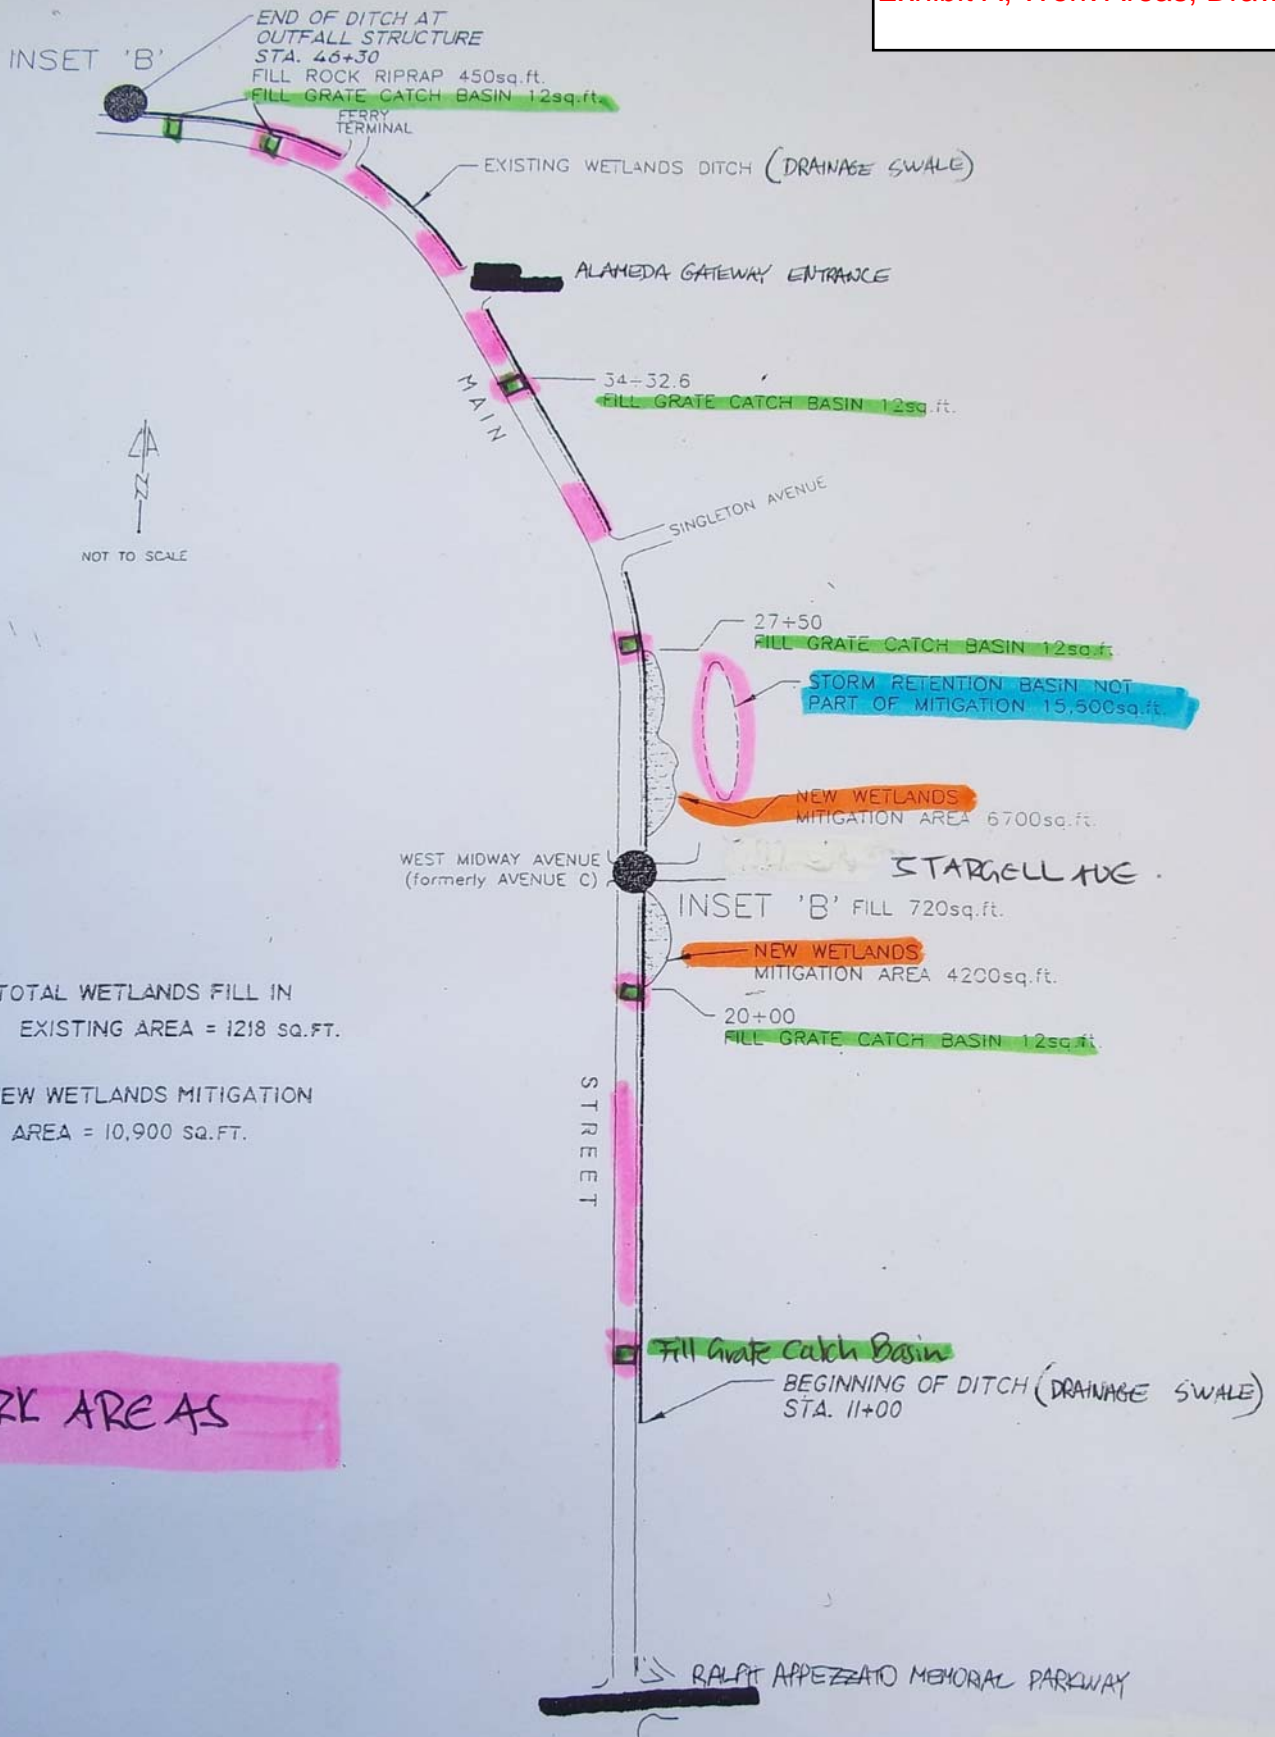 END OF DITCH AT
OUTFALL STRUCTURE
STA. 46+30
FILL ROCK RIPRAP 450sq.ft.
FILL GRATE CATCH BASIN 12sq.ft.
INSET 'B'
FERRY
TERMINAL
EXISTING WETLANDS DITCH (DRAINAGE SWALE)
ALAMEDA GATEWAY ENTRANCE
34+32.6
FILL GRATE CATCH BASIN 12sq.ft.
MAIN
N
NOT TO SCALE
SINGLETON AVENUE
27+50
FILL GRATE CATCH BASIN 12sq.ft.
STORM RETENTION BASIN NOT
PART OF MITIGATION 15,500sq.ft.
NEW WETLANDS
MITIGATION AREA 6700sq.ft.
WEST MIDWAY AVENUE
(formerly AVENUE C)
STARGELL AVE.
INSET 'B' FILL 720sq.ft.
NEW WETLANDS
MITIGATION AREA 4200sq.ft.
TOTAL WETLANDS FILL IN
EXISTING AREA = 1218 SQ.FT.
20+00
FILL GRATE CATCH BASIN 12sq.ft.
STREET
EW WETLANDS MITIGATION
AREA = 10,900 SQ.FT.
Fill Grate Catch Basin
BEGINNING OF DITCH (DRAINAGE SWALE)
STA. 11+00
RK AREAS
RALPH APPEZZATO MEMORIAL PARKWAY